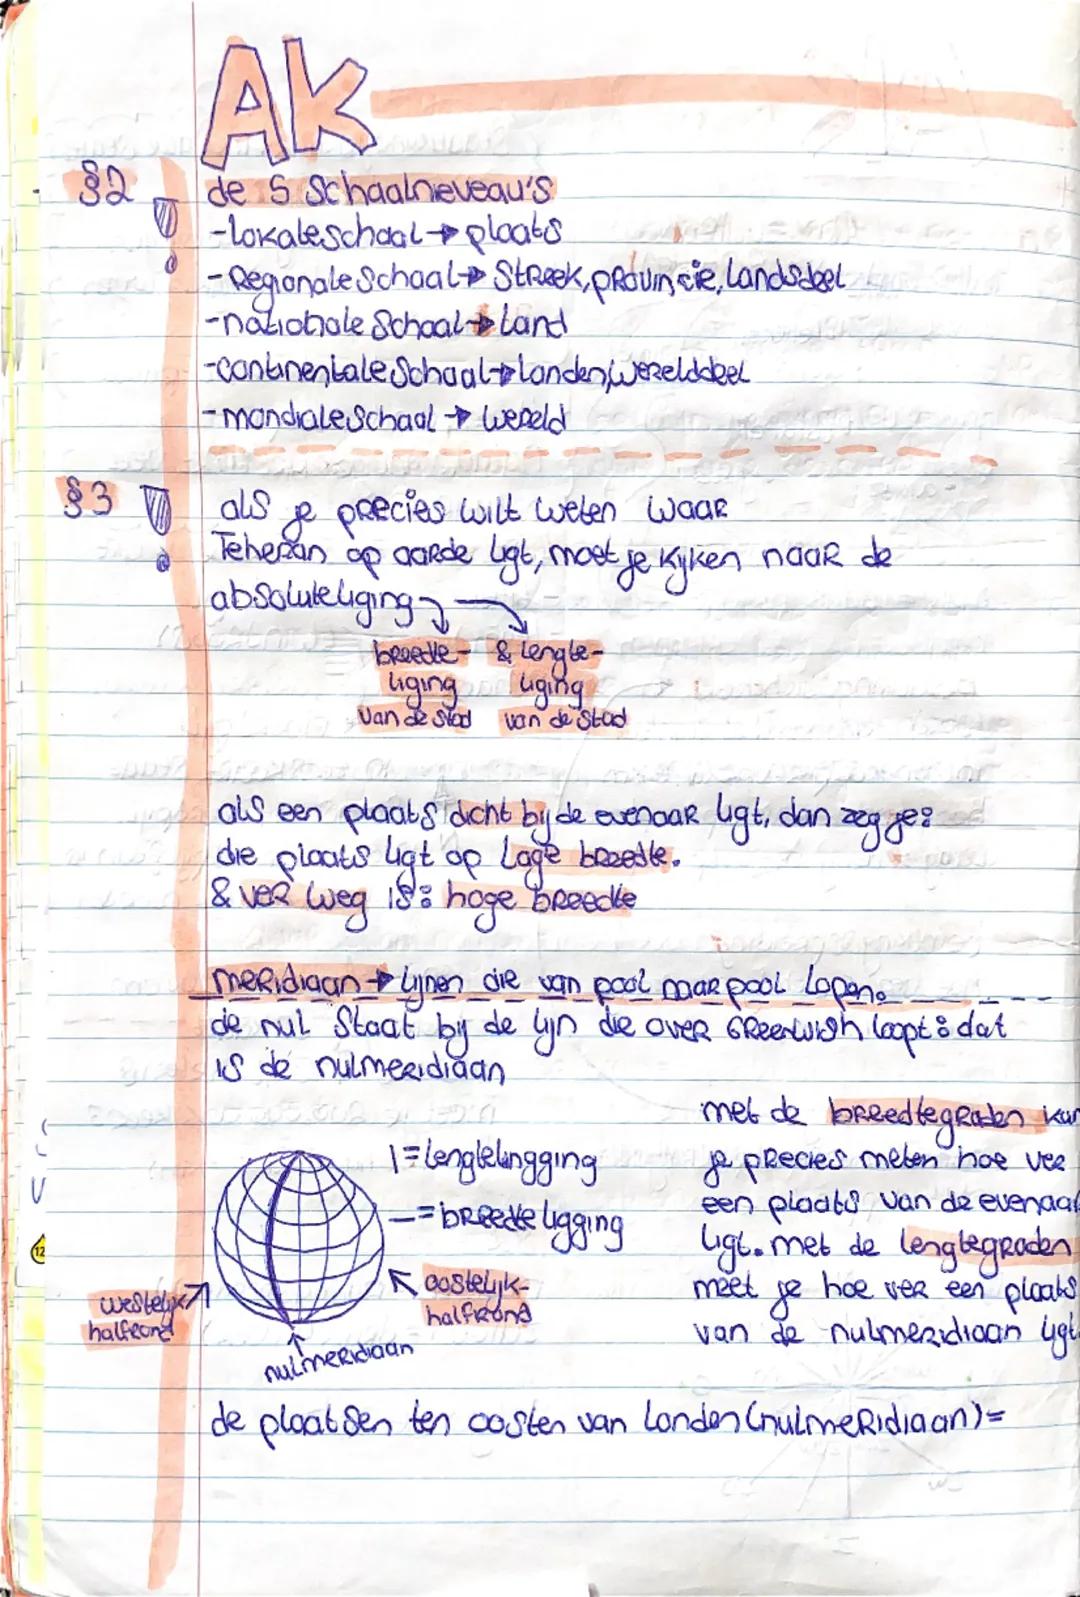 AK
§2
de 5 Schaalneveau's
-lokale schaal → plaats
-Regionale Schaal → Streek, provincie, landsdeel
-nationale Schaal → Land
-continentale Schaal → landen/werelddeel
-mondiale Schaal → wereld
§3
als je precies wilt weten waar
Teheran op aarde ligt, moet je kijken naar de
absolute liging
breedte- & lengte-
liging liging
van de stad van de stad
als een plaats dicht bij de evenaar ligt, dan zeg je:
die plaats ligt op lage breedte.
& ver weg is: hoge breedte
meridiaan → lijnen die van pool naar pool lopen.
de nul Staat bij de lijn die over Greenwish loopt: dat
is de nulmeridiaan
met de breedtegraden kan
je precies meten hoe ver
een plaats van de evenaar
ligt. met de lengtegraden
meet je hoe ver een plaats
van de nulmeridiaan ligt.
| = lengtelingging
— = breedte ligging
12
westelijk
halfrond
oostelijk-
halfrond
nulmeridiaan
de plaatsen ten oosten van Londen (nulmeridiaan) =